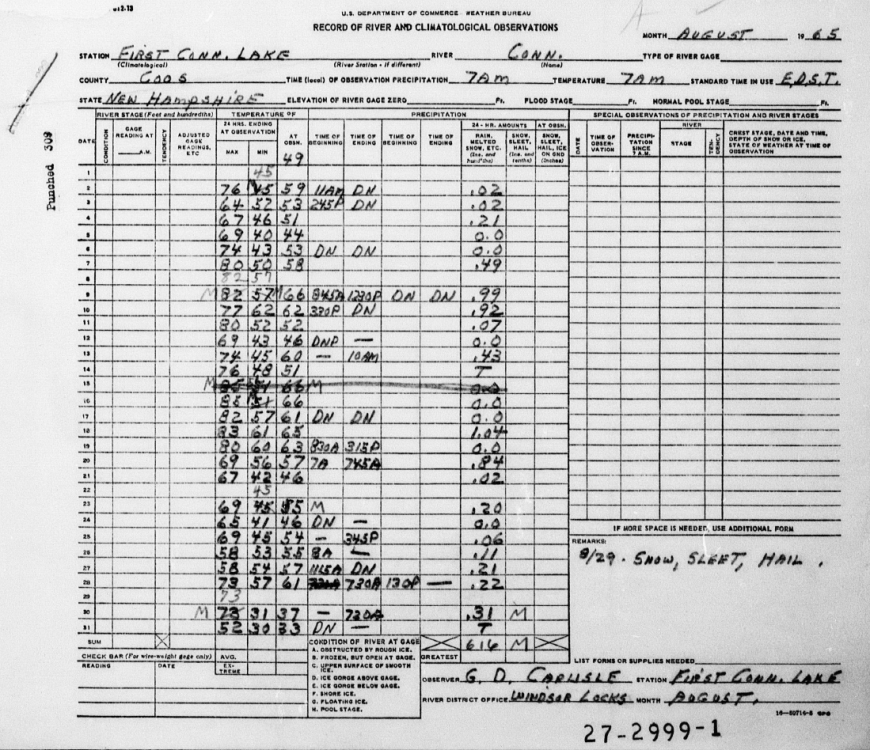 U.S. DEPARTMENT OF COMMERCE WEATHER BUREAU
RECORD OF RIVER AND CLIMATOLOGICAL OBSERVATIONS
MONTH AUGUST 1965
STATION FIRST CONN. LAKE RIVER CONN. TYPE OF RIVER GAGE
(Climatological) (River Station - if different) (Name)
COUNTY COOS TIME (local) OF OBSERVATION PRECIPITATION 7AM TEMPERATURE 7AM STANDARD TIME IN USE E.D.S.T.
STATE NEW HAMPSHIRE ELEVATION OF RIVER GAGE ZERO Ft. FLOOD STAGE Ft. NORMAL POOL STAGE Ft.
Punched 309
RIVER STAGE (Feet and hundredths) TEMPERATURE OF PRECIPITATION SPECIAL OBSERVATIONS OF PRECIPITATION AND RIVER STAGES
DATE CONDITION GAGE READING AT A.M. TENDENCY ADJUSTED GAGE READINGS, ETC 24 HRS. ENDING AT OBSERVATION MAX MIN AT OBSN. TIME OF BEGINNING TIME OF ENDING TIME OF BEGINNING TIME OF ENDING 24-HR. AMOUNTS RAIN, MELTED SNOW, ETC. (Ins. and hundredths) SNOW, SLEET, HAIL (Ins. and tenths) AT OBSN. SNOW, SLEET, HAIL, ICE ON GND (Inches) DATE TIME OF OBSERVATION PRECIPITATION SINCE 7 A.M. RIVER STAGE TENDENCY CREST STAGE, DATE AND TIME, DEPTH OF SNOW OR ICE, STATE OF WEATHER AT TIME OF OBSERVATION
49
1 45
2 76 45 59 11AM DN .02
3 64 52 53 245P DN .02
4 67 46 51 .21
5 69 40 44 0.0
6 74 43 53 DN DN 0.0
7 80 50 58 .49
8 82 57
9 M 82 57 M 66 845A 1230P DN DN .99
10 77 62 62 330P DN .92
11 80 52 52 .07
12 69 43 46 DNP — 0.0
13 74 45 60 — 10AM .43
14 76 48 51 T
15 M 66 M 0.0
16 85 51 66 0.0
17 82 57 61 DN DN 0.0
18 83 61 65 1.04
19 80 60 63 830A 315P 0.0
20 69 56 57 7A 745A .84
21 67 42 46 .02
22 45
23 69 45 55 M .20
24 65 41 46 DN — 0.0
25 69 45 54 — 345P .06
26 58 53 55 8A — .11
27 58 54 57 1115A DN .21
28 73 57 61 730A 130P — .22
29 73
30 M 73 31 37 — 730A .31 M
31 52 30 33 DN — T
SUM 6.16 M
CHECK BAR (For wire-weight gage only) AVG. GREATEST
READING DATE EXTREME
CONDITION OF RIVER AT GAGE
A. OBSTRUCTED BY ROUGH ICE.
B. FROZEN, BUT OPEN AT GAGE.
C. UPPER SURFACE OF SMOOTH ICE.
D. ICE GORGE ABOVE GAGE.
E. ICE GORGE BELOW GAGE.
F. SHORE ICE.
G. FLOATING ICE.
H. POOL STAGE.
IF MORE SPACE IS NEEDED, USE ADDITIONAL FORM
REMARKS:
8/29 - SNOW, SLEET, HAIL.
LIST FORMS OR SUPPLIES NEEDED
OBSERVER G. D. CARLISLE STATION FIRST CONN. LAKE
RIVER DISTRICT OFFICE WINDSOR LOCKS MONTH AUGUST.
27-2999-1